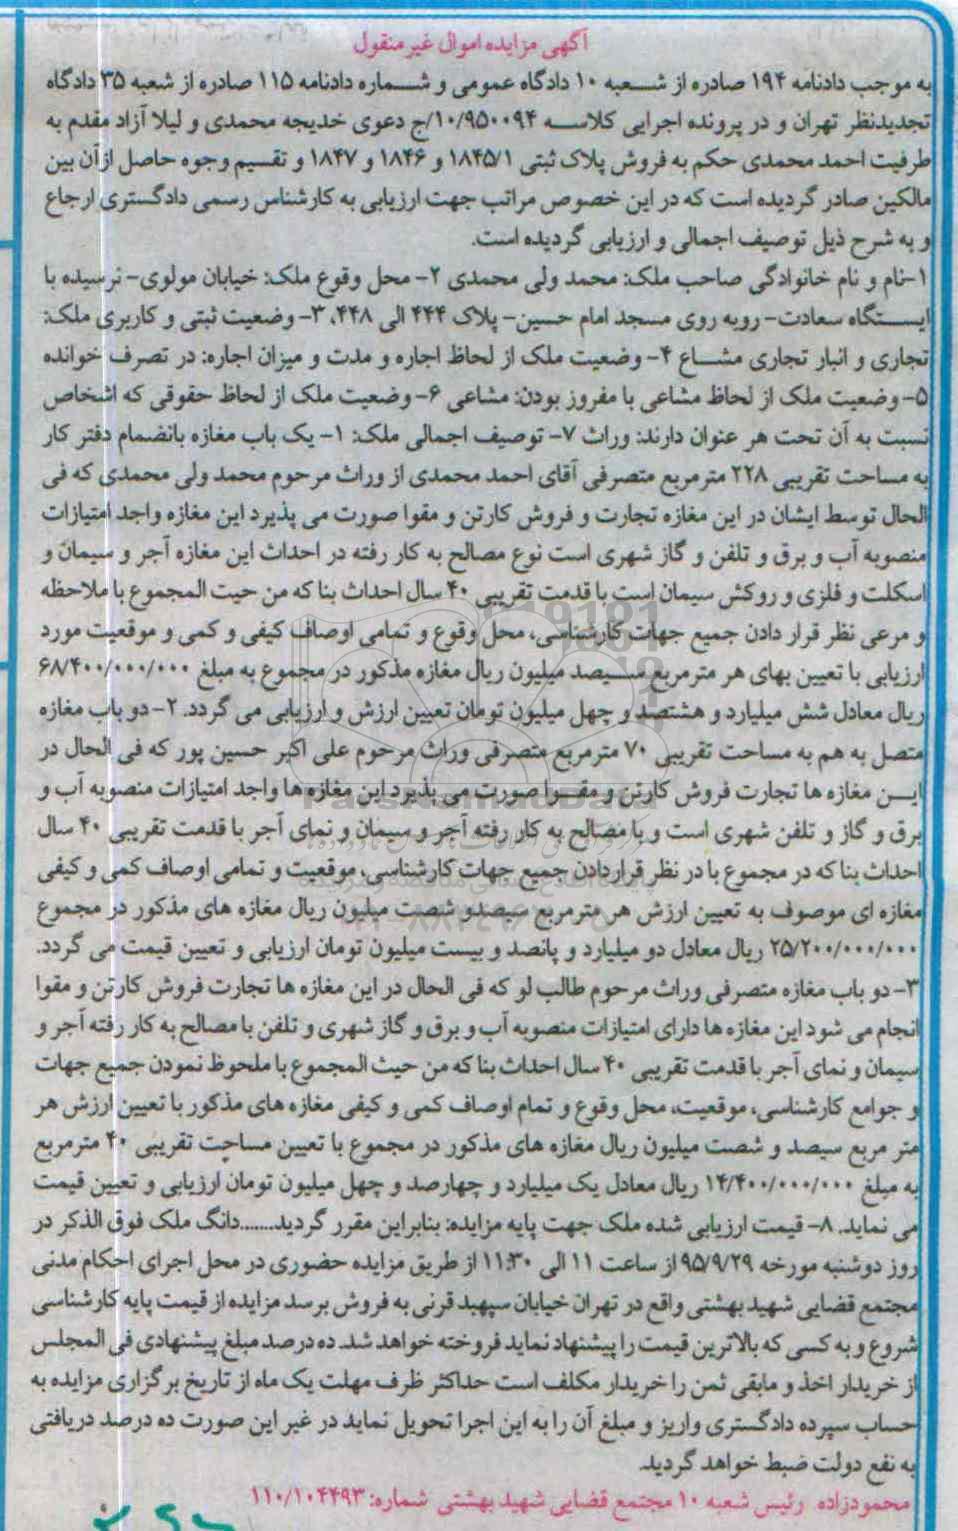 آگهی مزایده اموال غیرمنقول
به موجب دادنامه ۱۹۴ صادره از شعبه ۱۰ دادگاه عمومی و شماره دادنامه ۱۱۵ صادره از شعبه ۳۵ دادگاه
تجدیدنظر تهران و در پرونده اجرایی کلاسه ۱۰/۹۵۰۰۹۴/ج دعوی خدیجه محمدی و لیلا آزاد مقدم به
طرفیت احمد محمدی حکم به فروش پلاک ثبتی ۱۸۴۵/۱ و ۱۸۴۶ و ۱۸۴۷ و تقسیم وجوه حاصل ازآن بین
مالکین صادر گردیده است که در این خصوص مراتب جهت ارزیابی به کارشناس رسمی دادگستری ارجاع
و به شرح ذیل توصیف اجمالی و ارزیابی گردیده است.
۱-نام و نام خانوادگی صاحب ملک: محمد ولی محمدی ۲- محل وقوع ملک: خیابان مولوی- نرسیده با
ایستگاه سعادت- روبه روی مسجد امام حسین- پلاک ۴۴۴ الی ۴۴۸، ۳- وضعیت ثبتی و کاربری ملک:
تجاری و انبار تجاری مشاع ۴- وضعیت ملک از لحاظ اجاره و مدت و میزان اجاره: در تصرف خوانده
۵- وضعیت ملک از لحاظ مشاعی با مفروز بودن: مشاعی ۶- وضعیت ملک از لحاظ حقوقی که اشخاص
نسبت به آن تحت هر عنوان دارند: وراث ۷- توصیف اجمالی ملک: ۱- یک باب مغازه بانضمام دفتر کار
به مساحت تقریبی ۲۲۸ مترمربع متصرفی آقای احمد محمدی از وراث مرحوم محمد ولی محمدی که فی
الحال توسط ایشان در این مغازه تجارت و فروش کارتن و مقوا صورت می پذیرد این مغازه واجد امتیازات
منصوبه آب و برق و تلفن و گاز شهری است نوع مصالح به کار رفته در احداث این مغازه آجر و سیمان و
اسکلت و فلزی و روکش سیمان است با قدمت تقریبی ۴۰ سال احداث بنا که من حیث المجموع با ملاحظه
و مرعی نظر قرار دادن جمیع جهات کارشناسی، محل وقوع و تمامی اوصاف کیفی و کمی و موقعیت مورد
ارزیابی با تعیین بهای هر مترمربع سیصد میلیون ریال مغازه مذکور در مجموع به مبلغ ۶۸/۴۰۰/۰۰۰/۰۰۰
ریال معادل شش میلیارد و هشتصد و چهل میلیون تومان تعیین ارزش و ارزیابی می گردد. ۲- دو باب مغازه
متصل به هم به مساحت تقریبی ۷۰ مترمربع متصرفی وراث مرحوم علی اکبر حسین پور که فی الحال در
این مغازه ها تجارت فروش کارتن و مقوا صورت می پذیرد این مغازه ها واجد امتیازات منصوبه آب و
برق و گاز و تلفن شهری است و با مصالح به کار رفته آجر و سیمان و نمای آجر با قدمت تقریبی ۴۰ سال
احداث بنا که در مجموع با در نظر قراردادن جمیع جهات کارشناسی، موقعیت و تمامی اوصاف کمی و کیفی
مغازه ای موصوف به تعیین ارزش هر مترمربع سیصدو شصت میلیون ریال مغازه های مذکور در مجموع
۲۵/۲۰۰/۰۰۰/۰۰۰ ریال معادل دو میلیارد و پانصد و بیست میلیون تومان ارزیابی و تعیین قیمت می گردد.
۳- دو باب مغازه متصرفی وراث مرحوم طالب لو که فی الحال در این مغازه ها تجارت فروش کارتن و مقوا
انجام می شود این مغازه ها دارای امتیازات منصوبه آب و برق و گاز شهری و تلفن با مصالح به کار رفته آجر و
سیمان و نمای آجر با قدمت تقریبی ۴۰ سال احداث بنا که من حیث المجموع با ملحوظ نمودن جمیع جهات
و جوامع کارشناسی، موقعیت، محل وقوع و تمام اوصاف کمی و کیفی مغازه های مذکور با تعیین ارزش هر
متر مربع سیصد و شصت میلیون ریال مغازه های مذکور در مجموع با تعیین مساحت تقریبی ۴۰ مترمربع
به مبلغ ۱۴/۴۰۰/۰۰۰/۰۰۰ ریال معادل یک میلیارد و چهارصد و چهل میلیون تومان ارزیابی و تعیین قیمت
می نماید. ۸- قیمت ارزیابی شده ملک جهت پایه مزایده: بنابراین مقرر گردید.......دانگ ملک فوق الذکر در
روز دوشنبه مورخه ۹۵/۹/۲۹ از ساعت ۱۱ الی ۱۱:۳۰ از طریق مزایده حضوری در محل اجرای احکام مدنی
مجتمع قضایی شهید بهشتی واقع در تهران خیابان سپهبد قرنی به فروش برسد مزایده از قیمت پایه کارشناسی
شروع و به کسی که بالاترین قیمت را پیشنهاد نماید فروخته خواهد شد. ده درصد مبلغ پیشنهادی فی المجلس
از خریدار اخذ و مابقی ثمن را خریدار مکلف است حداکثر ظرف مهلت یک ماه از تاریخ برگزاری مزایده به
حساب سپرده دادگستری واریز و مبلغ آن را به این اجرا تحویل نماید در غیر این صورت ده درصد دریافتی
به نفع دولت ضبط خواهد گردید.
محمودزاده رئیس شعبه ۱۰ مجتمع قضایی شهید بهشتی شماره: ۱۱۰/۱۰۴۴۹۳